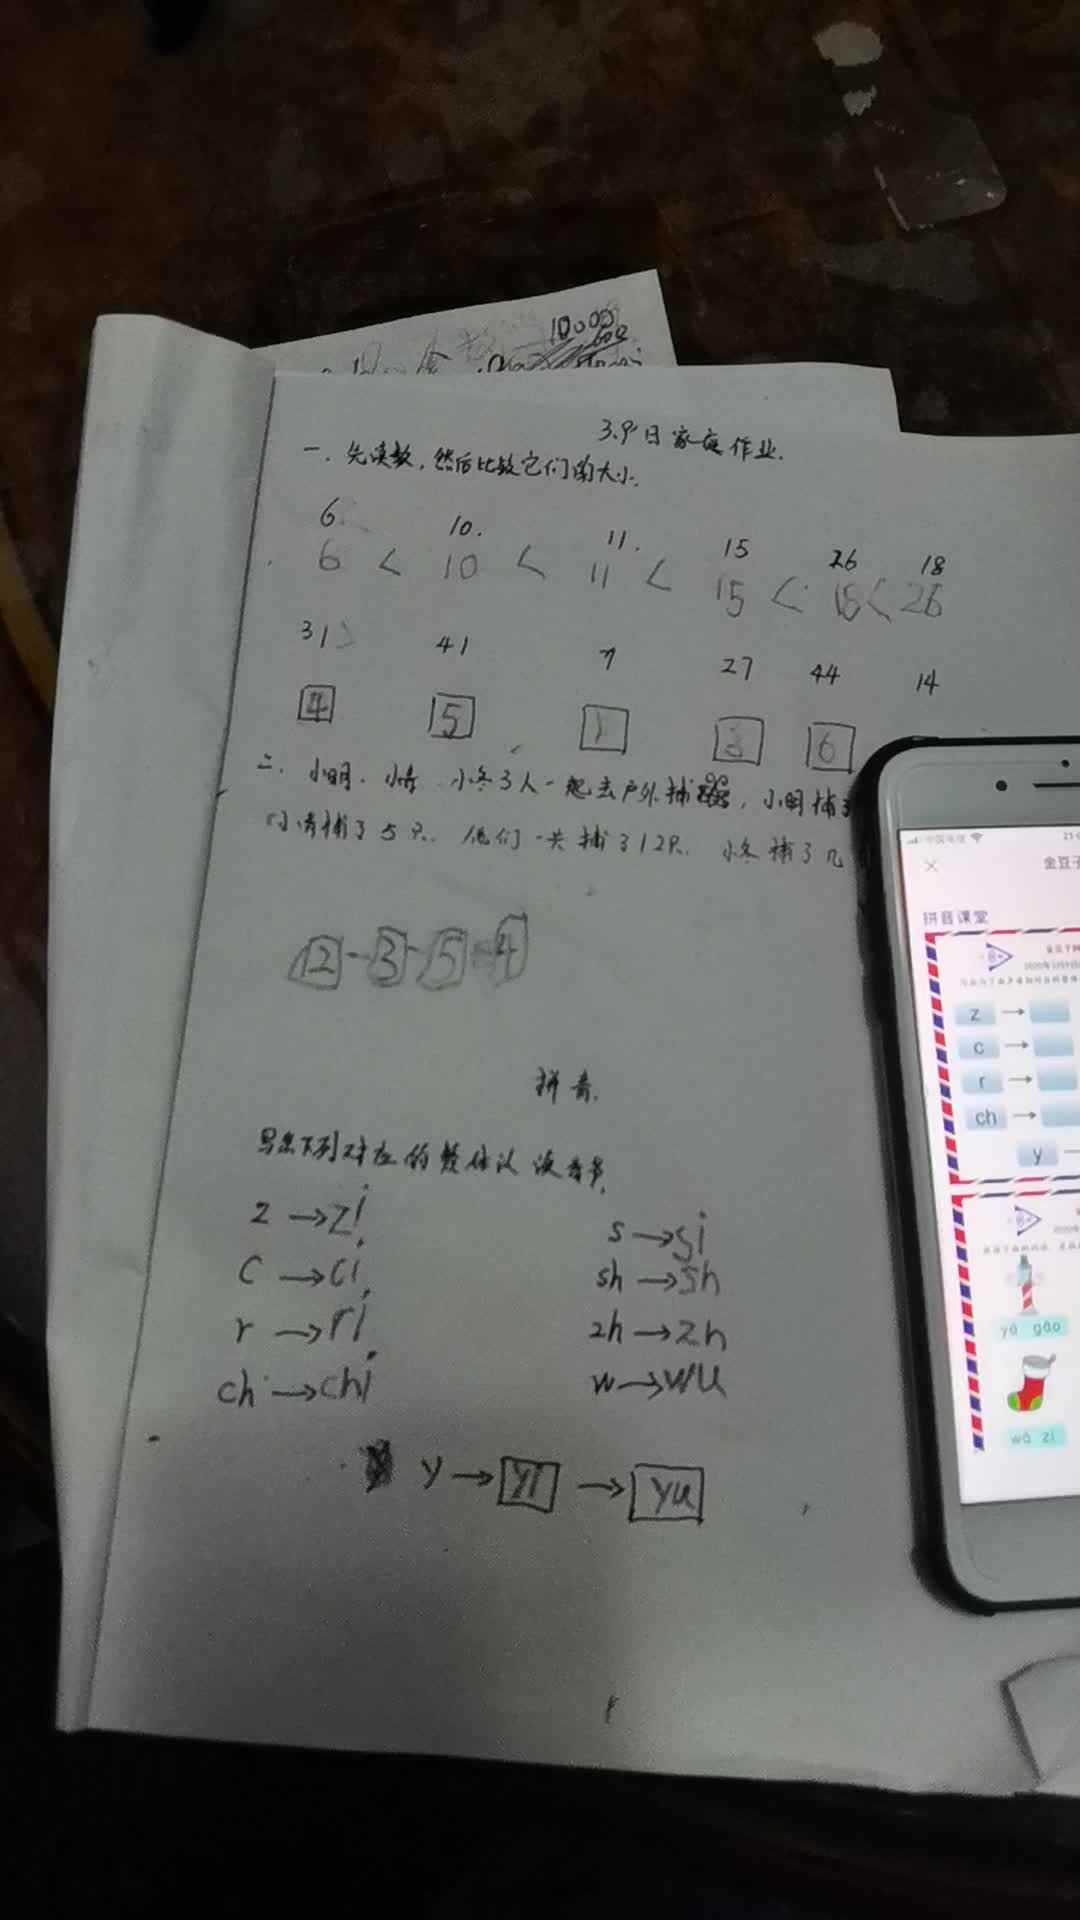 10000
3.9日家庭作业.
一.先读数,然后比较它们的大小.
6 10. 11. 15 26 18
6 < 10 < 11 < 15 < 18 < 26
31 41 7 27 44 14
4 5 1 3 6
二.小明.小青.小冬3人一起去户外捕,小明捕了
小青捕了5只.他们一共捕了12只.小冬捕了几
12-3-5=4
拼音.
写出下列对应的整体认读音节.
z→zi s→si
c→ci sh→sh
r→ri zh→zh
ch→chi w→wu
y→yi→yu
中国电信
×
金豆子
拼音课堂
z→
c→
r→
ch→
y
yá gāo
wà zi